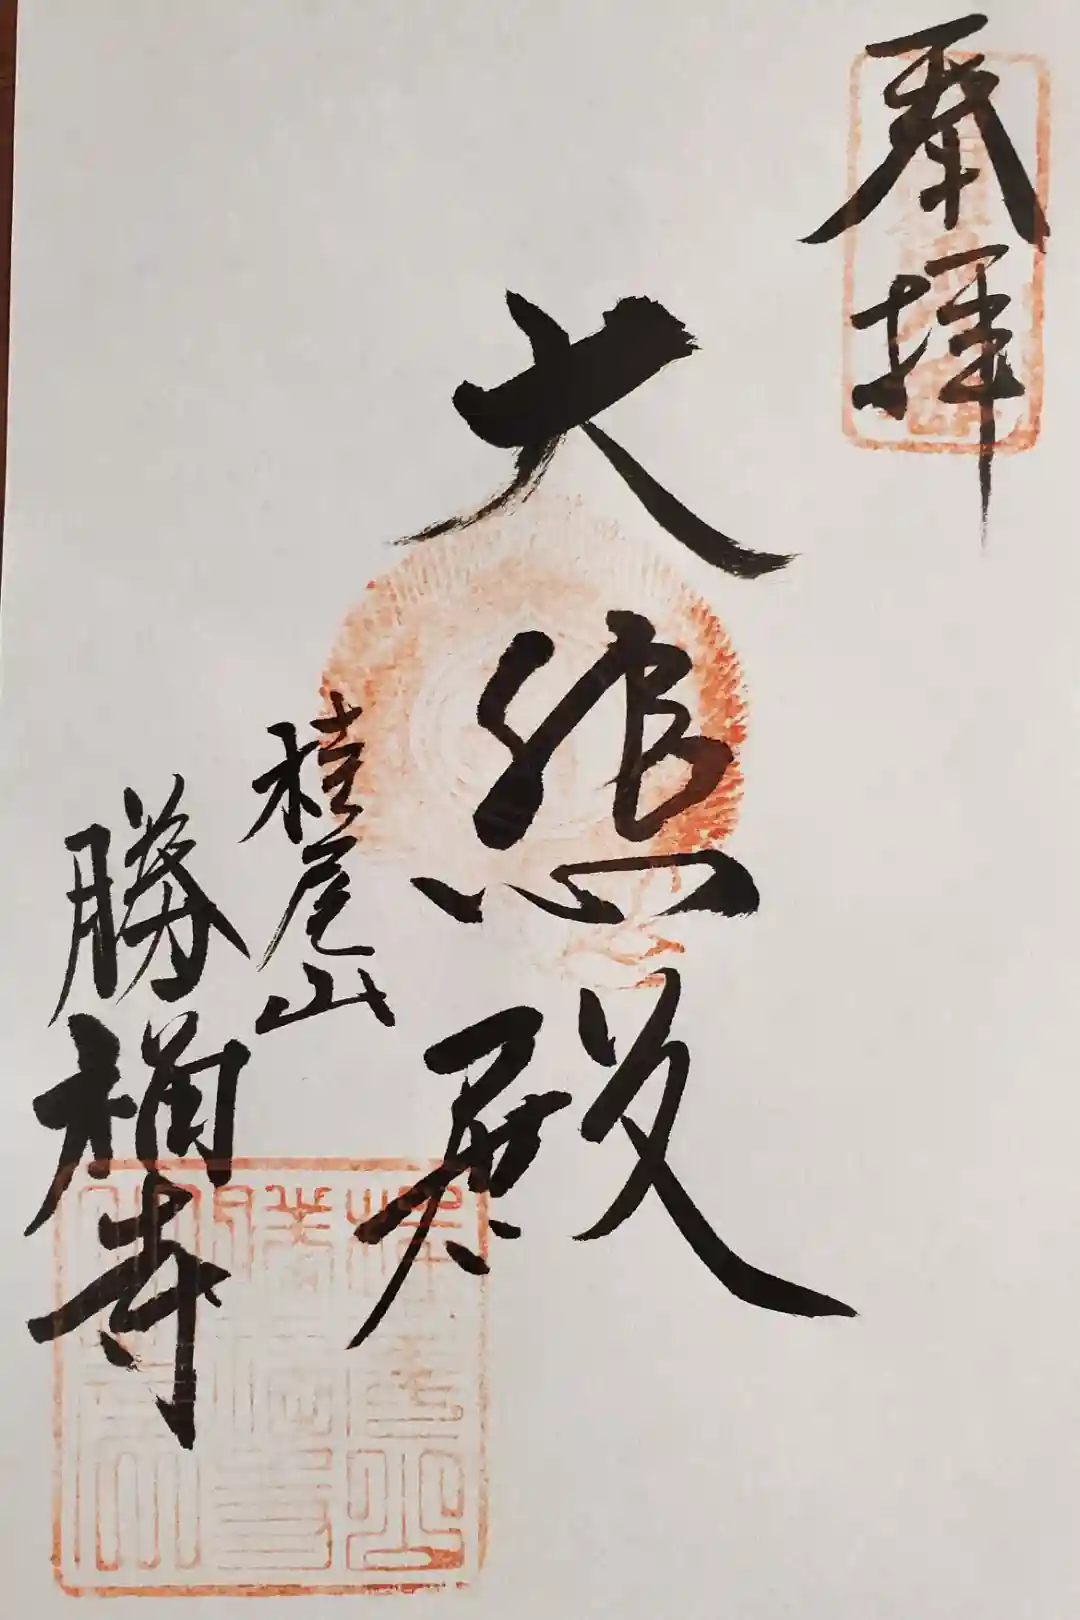 奉拝
大悲殿
桂尾山
勝福寺